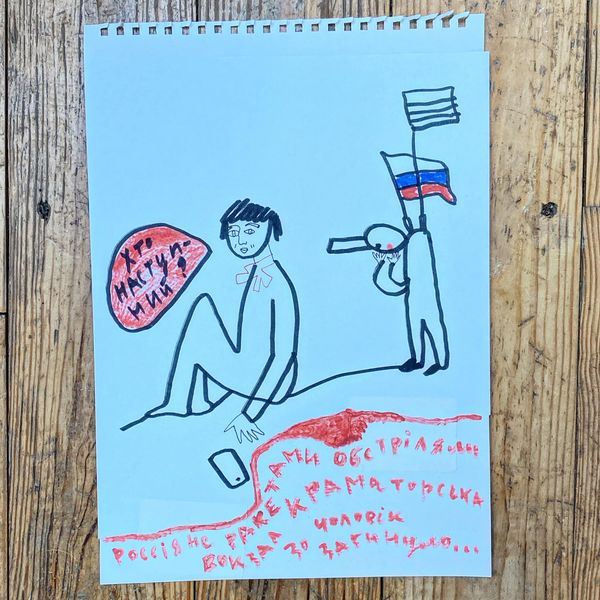 ХТО
НАСТУП-
НИЙ?
РОССІЯНЕ РАКЕТАМИ ОБСТРІЛЯЛИ
ВОКЗАЛ КРАМАТОРСЬКА
ЧОЛОВІК
30 ЗАГИНУЛО...